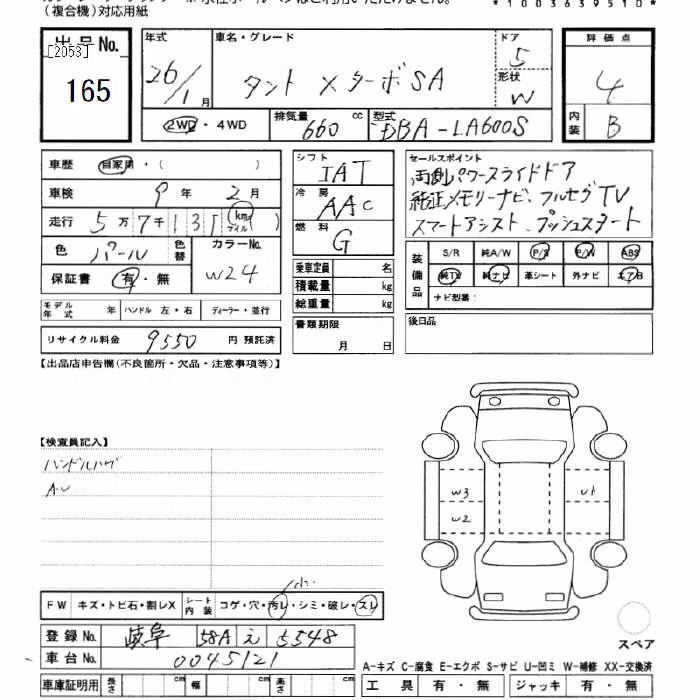 (複合機)対応用紙
*1003639510*
出品No.
[2053]
165
年式
26/1月
車名・グレード
タント Xターボ SA
ドア
5
形状
W
評価点
4
内装
B
2WD・4WD
排気量
660 cc
型式
DBA-LA600S
車歴 自家用・( )
車検 9年 2月
走行 5万7千131 (km マイル)
色 パール 色替 カラーNo. W24
保証書 有・無
モデル年式 年 ハンドル 左・右 ディーラー・並行
リサイクル料金 9550 円 預託済
シフト
IAT
冷房
AAC
燃料
G
乗車定員 名
積載量 kg
総重量 kg
書類期限
月 日
セールスポイント
両側パワースライドドア
純正メモリーナビ、フルセグTV
スマートアシスト、プッシュスタート
装備品
S/R 純A/W P/S P/W ABS
純TV 純ナビ 革シート 外ナビ エアB
ナビ型番:
後日品
【出品店申告欄(不良箇所・欠品・注意事項等)】
【検査員記入】
ハンドルハゲ
A・U
W3
W2
U1
FW キズ・トビ石・割レX シート内装 コゲ・穴・汚レ・シミ・破レ・スレ
小
登録No. 岐阜 58A え 5548
車台No. 0045121
車庫証明用 長さ cm 幅 cm 高さ cm
スペア
A-キズ C-腐食 E-エクボ S-サビ U-凹ミ W-補修 XX-交換済
工具 有・無 ジャッキ 有・無